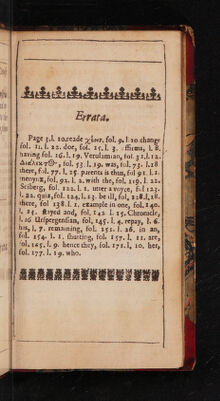 Errata.
Page 3. l. 10. reade χθων, fol. 9. l. 10 change
fol. 11. l. 22. doe, fol. 15. l. 3. ffirms, l. 8.
having fol. 16. l. 19. Verulamian, fol. 32. l. 12.
fol. 53. l. 19. was, fol. 73. l. 18
there, fol. 77. l. 25. parents is thus, fol 91. l. 1.
fol. 92. l. 2. with the, fol. 119. l. 21
Sciberg, fol. 122. l. 1. utter a voyce, fol 123.
l. 22. quia, fol. 124. l. 13. be ill, fol, 128. l. 18.
there, fol 138. l. 1. example in one, fol. 140.
l. 25. stayed and, fol, 142 l. 15. Chronicle,
l. 16 Uspergensian, fol. 145. l. 4. repay, l. 6.
his, l. 7. remaining, fol. 151. l. 26. in an,
fol. 154. l. 1. shutting, fol. 157. l. 21 are,
fol. 165. l. 9. hence they, fol. 171. l. 10. her,
fol. 177. l. 19. who.